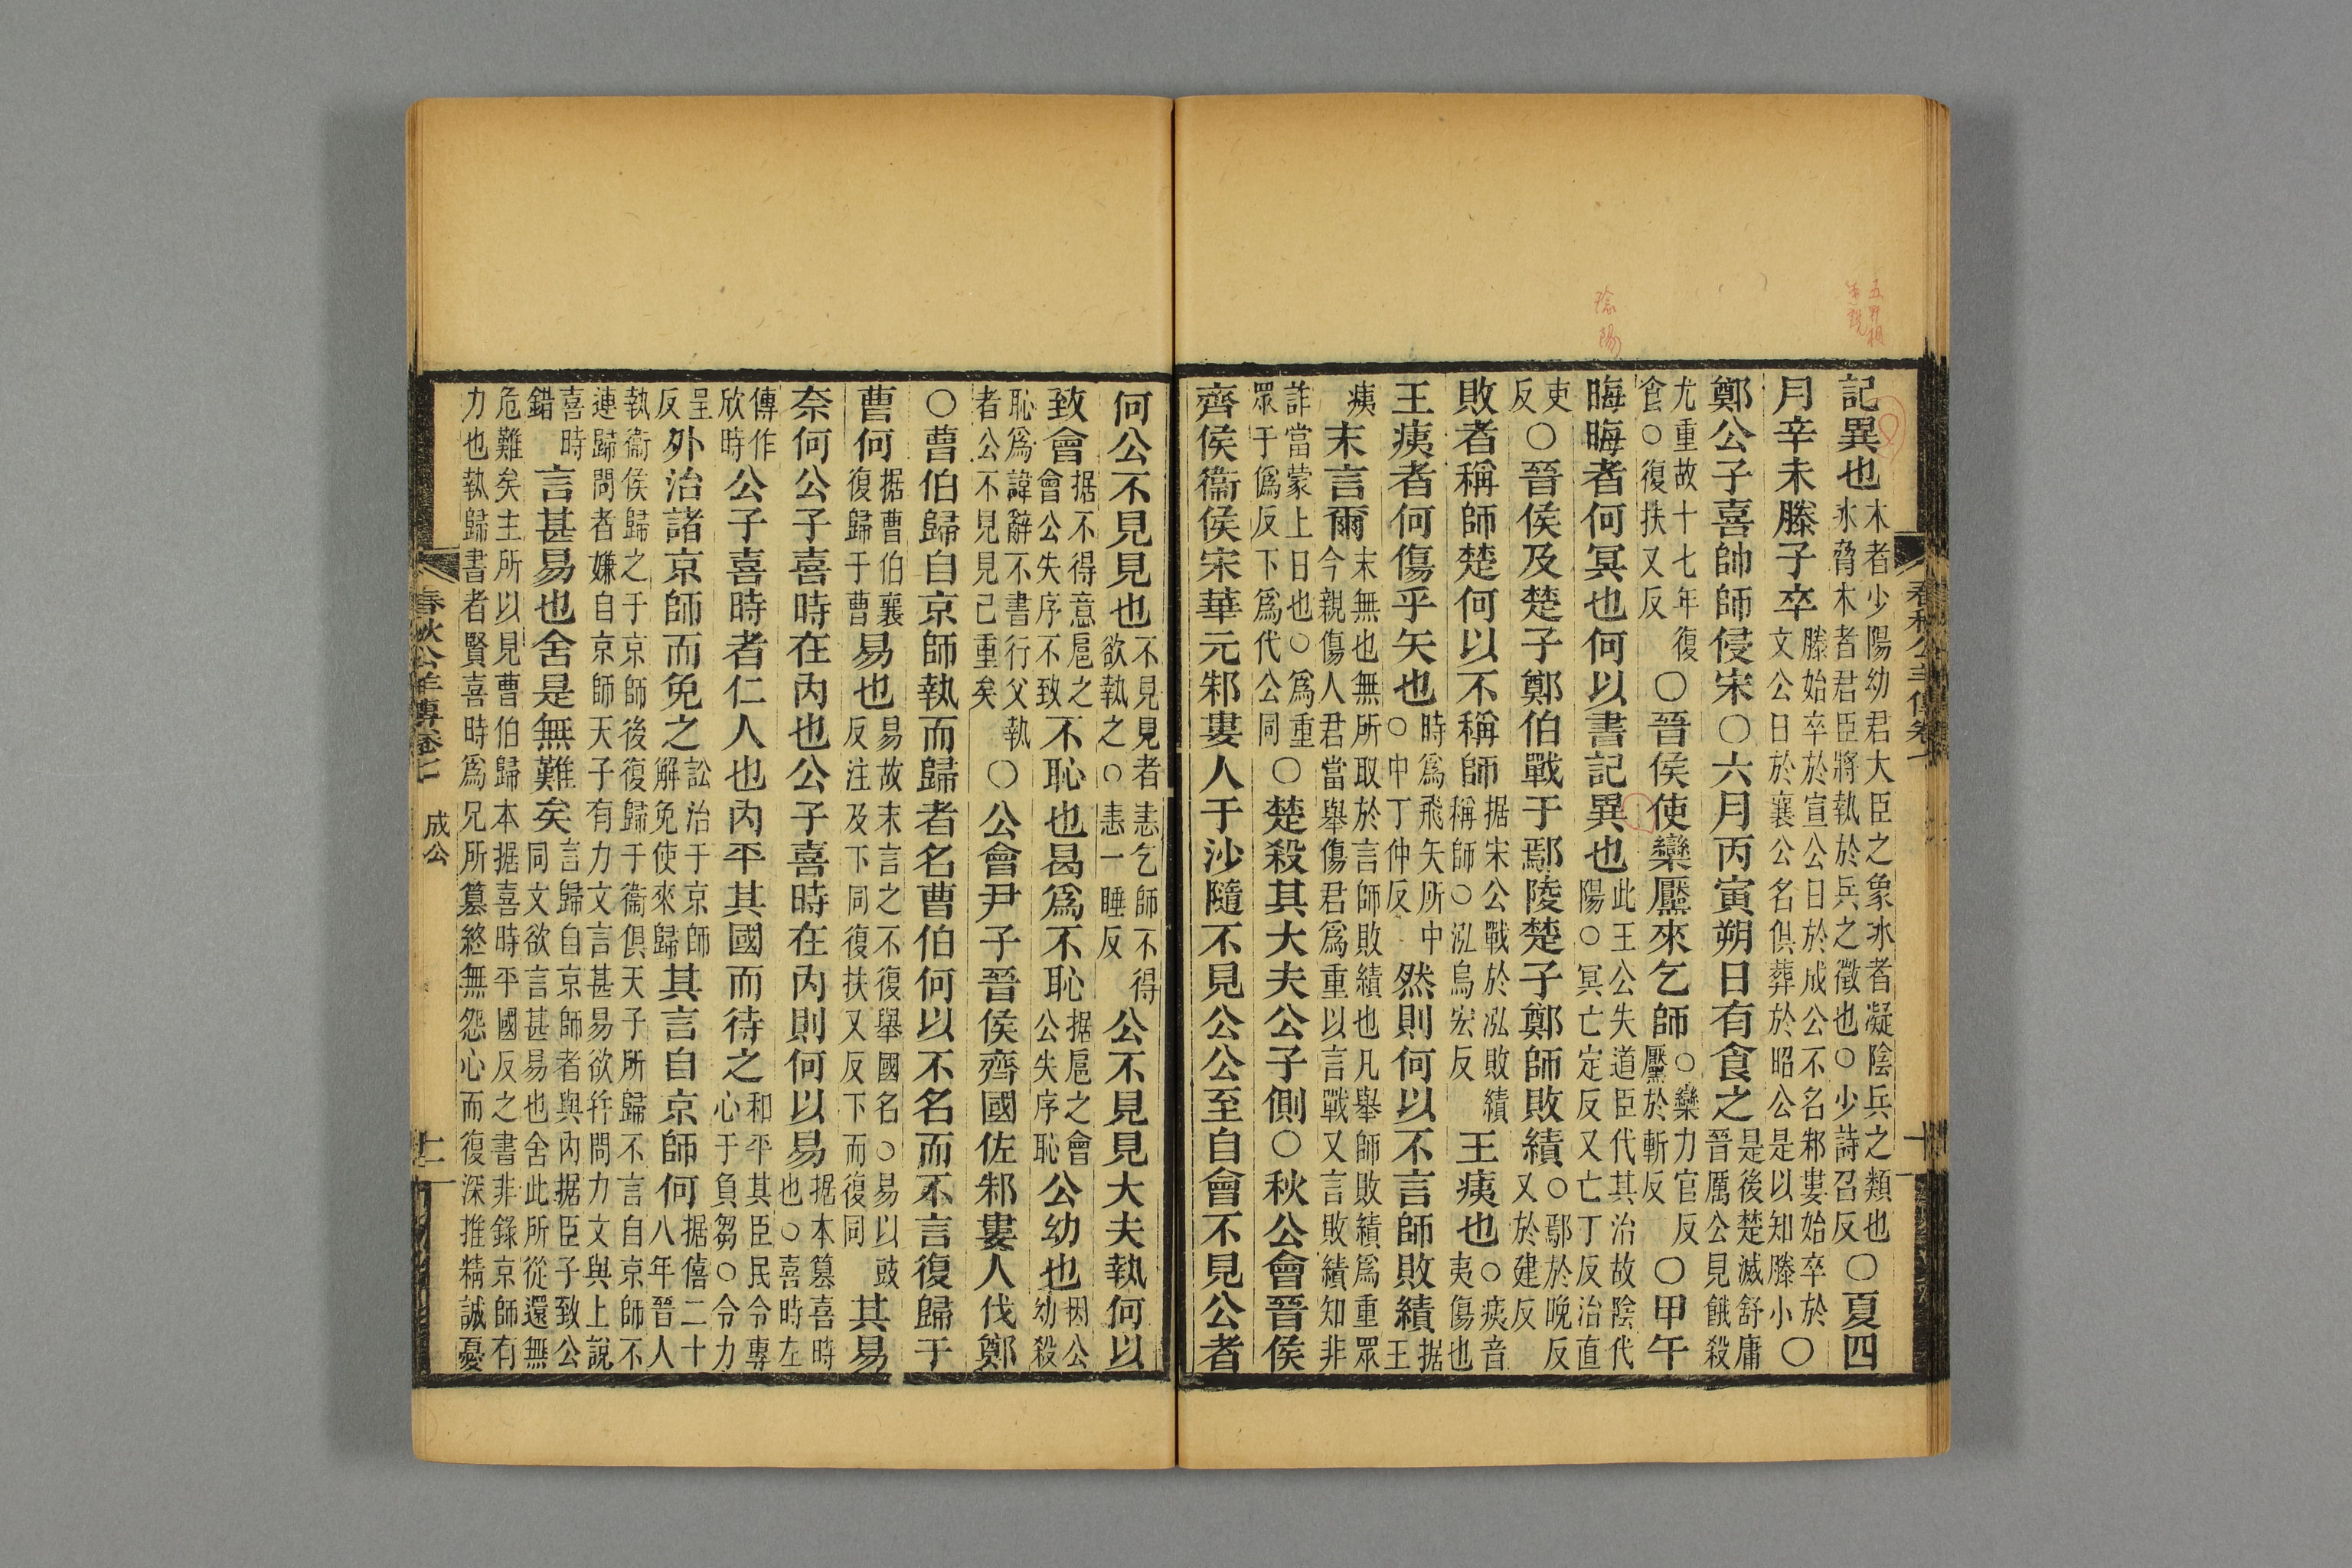 五行相
陰陽
春秋公羊傳卷
記異也木者少陽幼君大臣之象冰者凝陰兵之類也冰脅木者君臣將執於兵之徵也○少詩召反○夏四
月辛未滕子卒滕始卒於宣公日於成公不名邾婁始卒於文公日於襄公名俱葬於昭公是以知滕小○
鄭公子喜帥師侵宋○六月丙寅朔日有食之是後楚滅舒庸晉厲公見餓殺
尤重故十七年復食○復扶又反○晉侯使欒黶來乞師○欒力官反黶於斬反○甲午
晦晦者何冥也何以書記異也此王公失道臣代其治故陰代陽○冥亡定反又亡丁反治直
吏反○晉侯及楚子鄭伯戰于鄢陵楚子鄭師敗績○鄢於晚反又於建反
敗者稱師楚何以不稱師据宋公戰於泓敗績稱師○泓烏宏反王痍也○痍音夷傷也
王痍者何傷乎矢也時爲飛矢所中○中丁仲反然則何以不言師敗績据王
痍末言爾末無也無所取於言師敗績也凡舉師敗績爲重眾今親傷人君當舉傷君爲重以言戰又言敗績知非
詐當蒙上日也○爲重眾于僞反下爲代公同○楚殺其大夫公子側○秋公會晉侯
齊侯衞侯宋華元邾婁人于沙隨不見公公至自會不見公者
何公不見見也不見見者恚乞師不得欲執之○恚一睡反公不見見大夫執何以
致會据不得意扈之會公失序不致不恥也曷爲不恥据扈之會公失序恥公幼也因公幼殺
恥爲諱辭不書行父執者公不見見己重矣○公會尹子晉侯齊國佐邾婁人伐鄭
○曹伯歸自京師執而歸者名曹伯何以不名而不言復歸于
曹何据曹伯襄復歸于曹易也易故末言之不復舉國名○易以豉反注及下同復扶又反下而復同其易
奈何公子喜時在內也公子喜時在內則何以易据本篡喜時也○喜時左
傳作欣時公子喜時者仁人也內平其國而待之和平其臣民令專心于負芻○令力
呈反外治諸京師而免之訟治于京師解免使來歸其言自京師何据僖二十八年晉人
執衞侯歸之于京師後復歸于衞俱天子所歸不言自京師不連歸問者嫌自京師天子有力文言甚易欲幷問力文與上說
喜時錯言甚易也舍是無難矣言歸自京師者與內据臣子致公同文欲言甚易也舍此所從還無
危難矣主所以見曹伯歸本据喜時平國反之書非錄京師有力也執歸書者賢喜時爲兄所篡終無怨心而復深推精誠憂
春秋公羊傳卷七 成公 十二